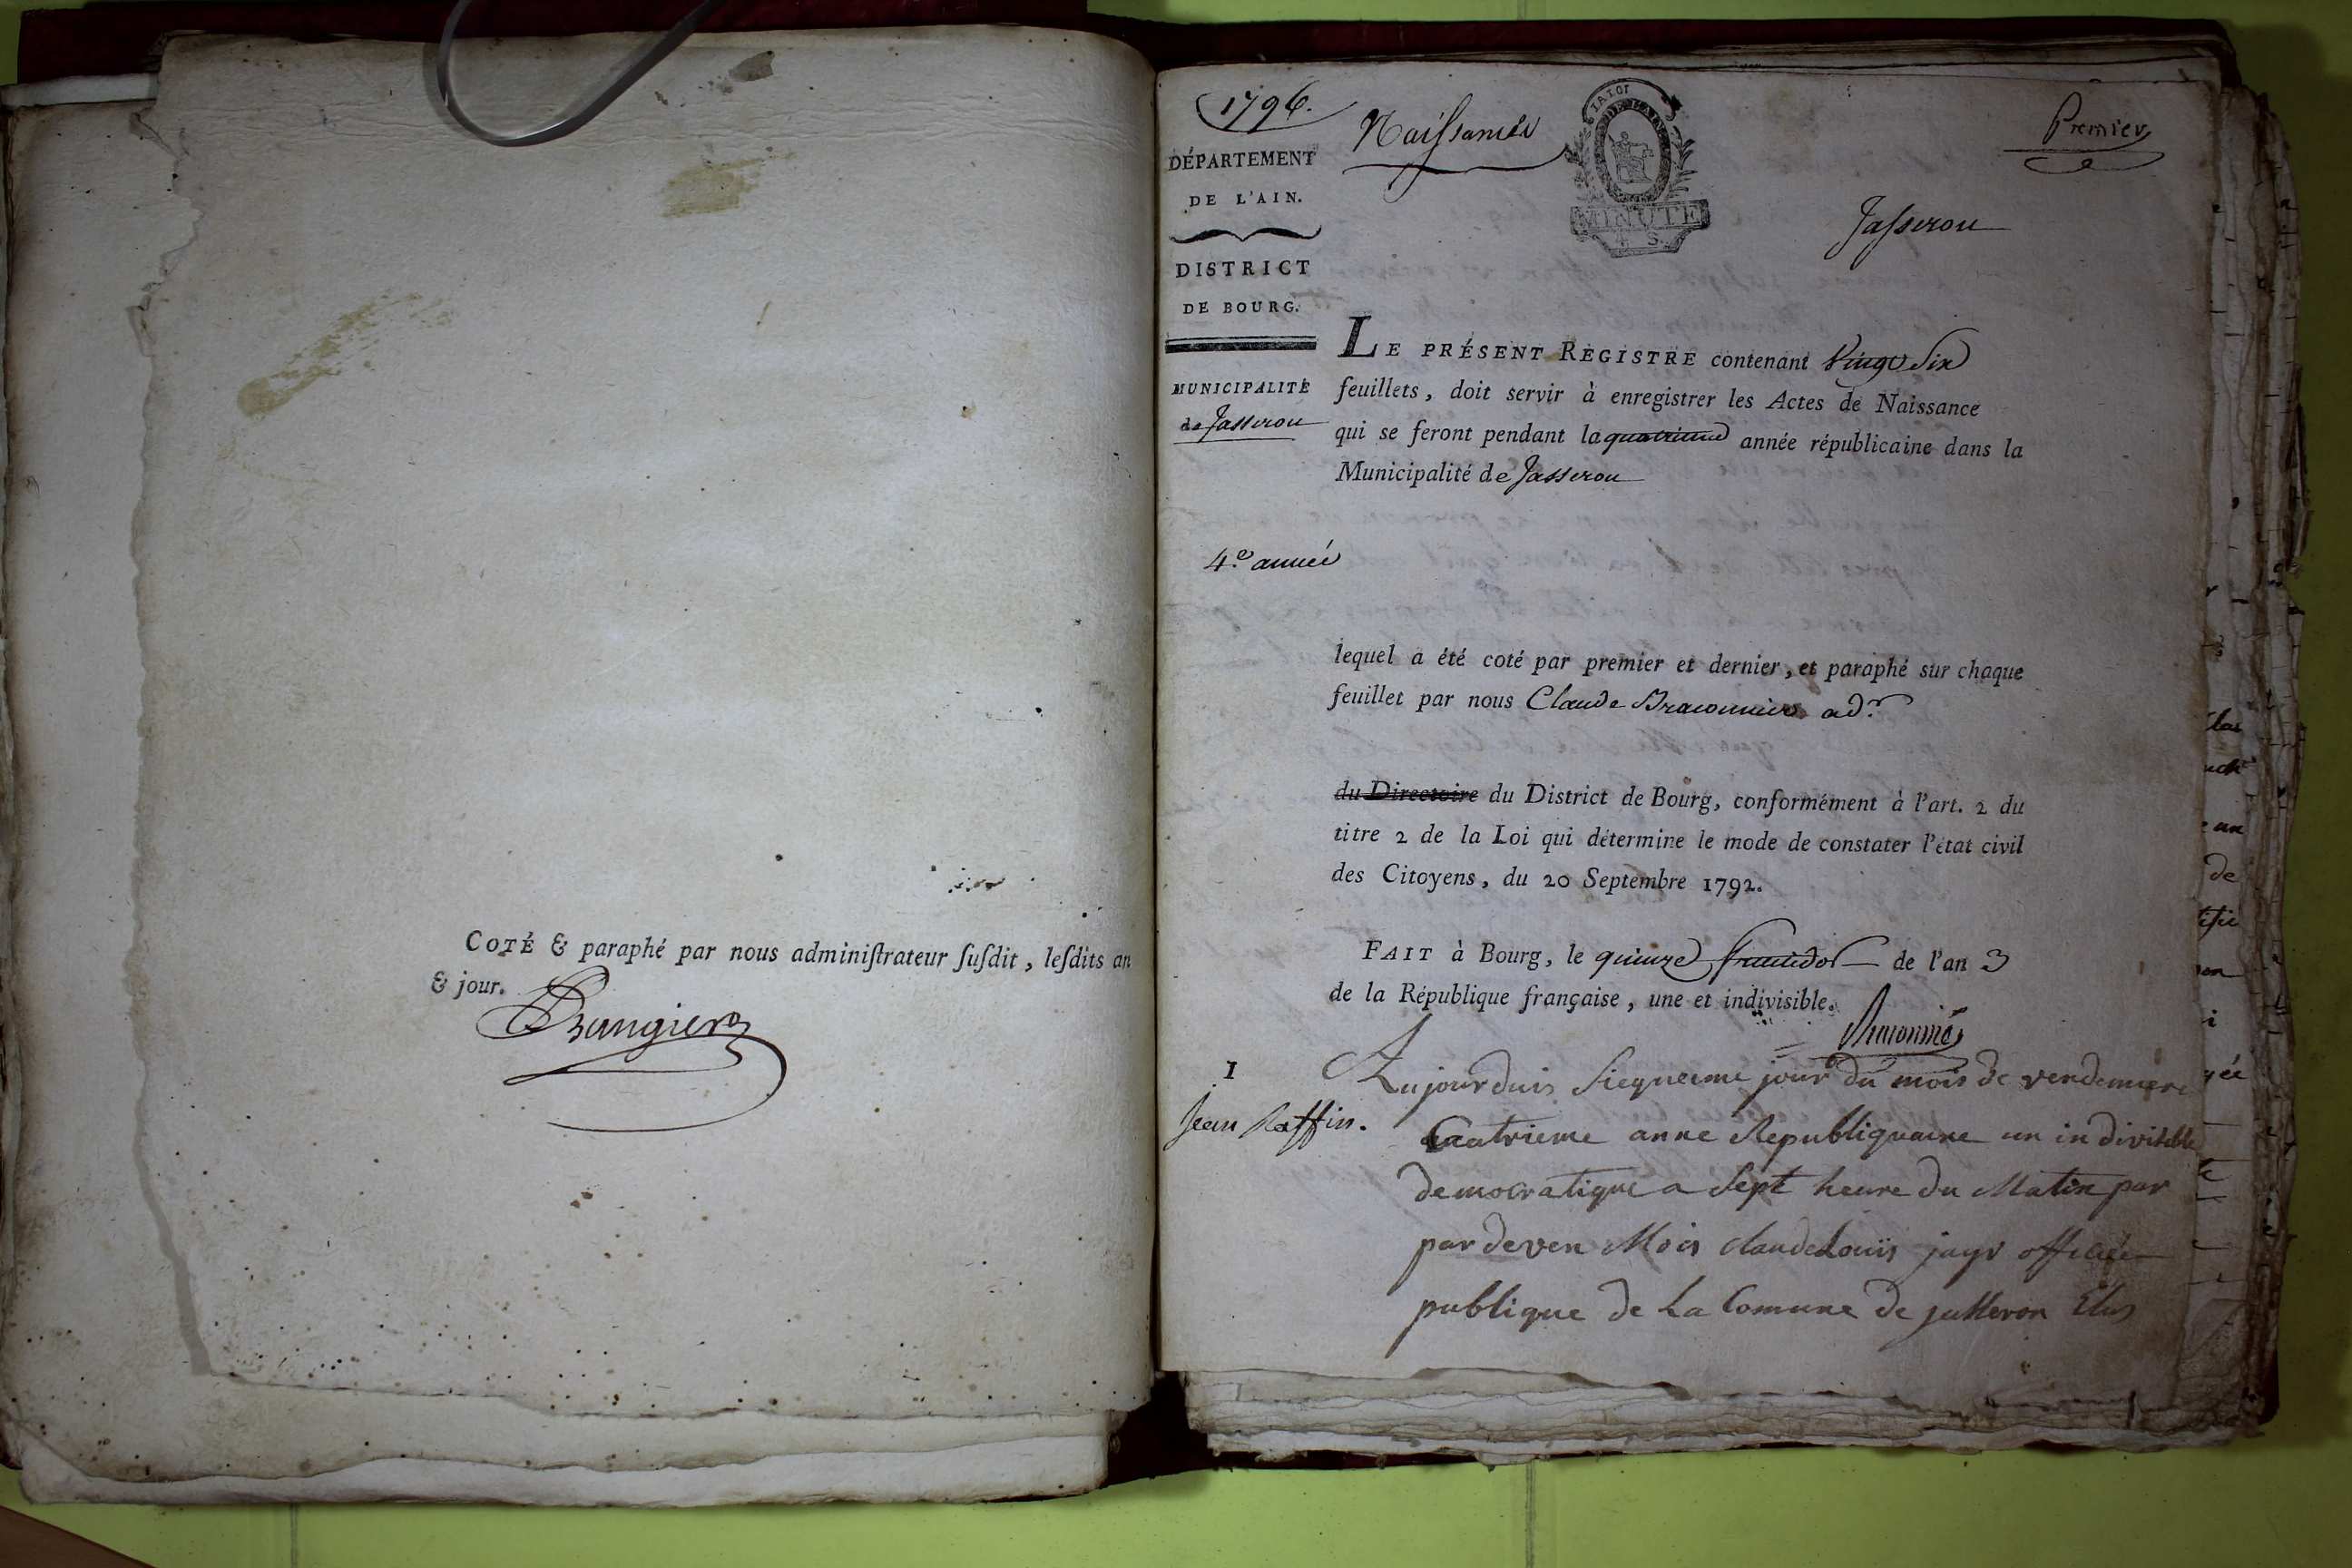 COTÉ & paraphé par nous adminiſtrateur ſuſdit, leſdits an
& jour.
1796.
Naissances
Premier
DÉPARTEMENT
DE L'AIN.
MINUTE
Jasseron
DISTRICT
DE BOURG.
MUNICIPALITÉ
de Jasseron
LE PRÉSENT REGISTRE contenant Vingt Six
feuillets, doit servir à enregistrer les Actes de Naissance
qui se feront pendant la quatrieme année républicaine dans la
Municipalité de Jasseron
4.e année
lequel a été coté par premier et dernier, et paraphé sur chaque
feuillet par nous Claude Braconnier ad.r
du Directoire du District de Bourg, conformément à l'art. 2 du
titre 2 de la Loi qui détermine le mode de constater l'état civil
des Citoyens, du 20 Septembre 1792.
FAIT à Bourg, le quinze fructidor de l'an 3
de la République française, une et indivisible.
1
Jean Raffin.
Aujourduis Siequieme jour du mois de vendemiere
Catrieme anne Republiquaine un in divisible
democratique a Sept heure du Matin par
par deven Mois claude Louis jayr officiée
publique de La Comune de jasseron Elus